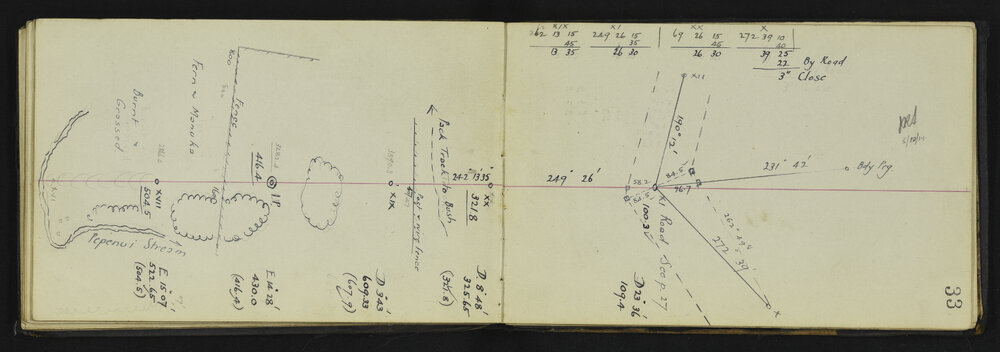 XIX
262 13 15
45
13 35
XI
249 26 15
35
26 30
XX
69 26 15
45
26 30
X
272 39 10
40
39 25
22 By Road
3" Close
XII
190° 12'
231° 42'
Bdy Peg
84.5
58.2
96.7
100.3
XI Road See p. 27
262° 49'
272° 39'
X
D 23° 36'
109.4
33
249° 26'
242° 13' 35"
XX
321.8
Pack Track to Bush
Post & wire fence
XIX
IP
416.4
Fence
Fern & Manuka
Burnt &
Grassed
XVII
504.5
Pepenui Stream
D 8° 48'
325.65
(321.8)
D 3° 43'
609.33
(607.9)
E 14° 28'
430.0
(416.4)
E 15° 07'
522.65
(504.5)